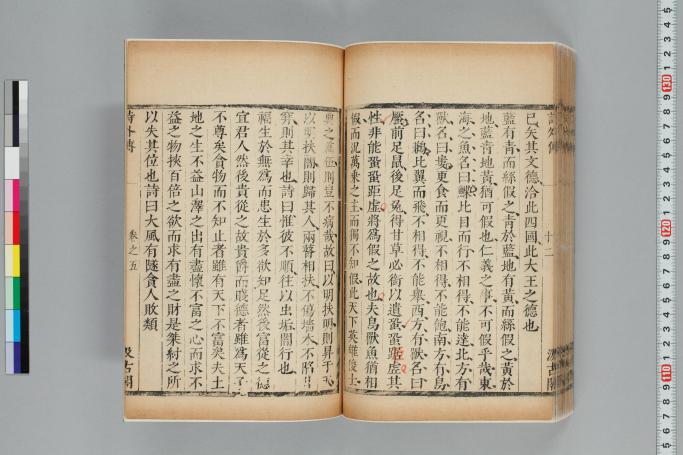 已矣其文德洽此四國此大王之德也
藍有青而絲假之青於藍地有黃而絲假之黃於
地藍青地黃猶可假也仁義之事不可假乎哉東
海之魚名曰鰈比目而行不相得不能達北方有
獸名曰婁更食而更視不相得不能飽南方有鳥
名曰鶼比翼而飛不相得不能舉西方有獸名曰
蟨前足鼠後足兔得甘草必銜以遺蛩蛩距虛其
性非能蛩蛩距虛將爲假之故也夫鳥獸魚猶相
假而況萬乘之主而獨不知假此天下英雄俊士
與之爲伍則豈不病哉故曰以明扶明則昇于天
以明扶闇則歸其人兩瞽相扶不傷墻木不陷井
穽則其幸也詩曰惟彼不順往以虫垢闇行也
福生於無爲而患生於多欲知足然後富從之德
宜君人然後貴從之故貴爵而賤德者雖爲天子
不尊矣貪物而不知止者雖有天下不富矣夫土
地之生不益山澤之出有盡懷不富之心而求不
益之物挾百倍之欲而求有盡之財是桀紂之所
以失其位也詩曰大風有隧貪人敗類
詩外傳
卷之五
十二
汲古閣